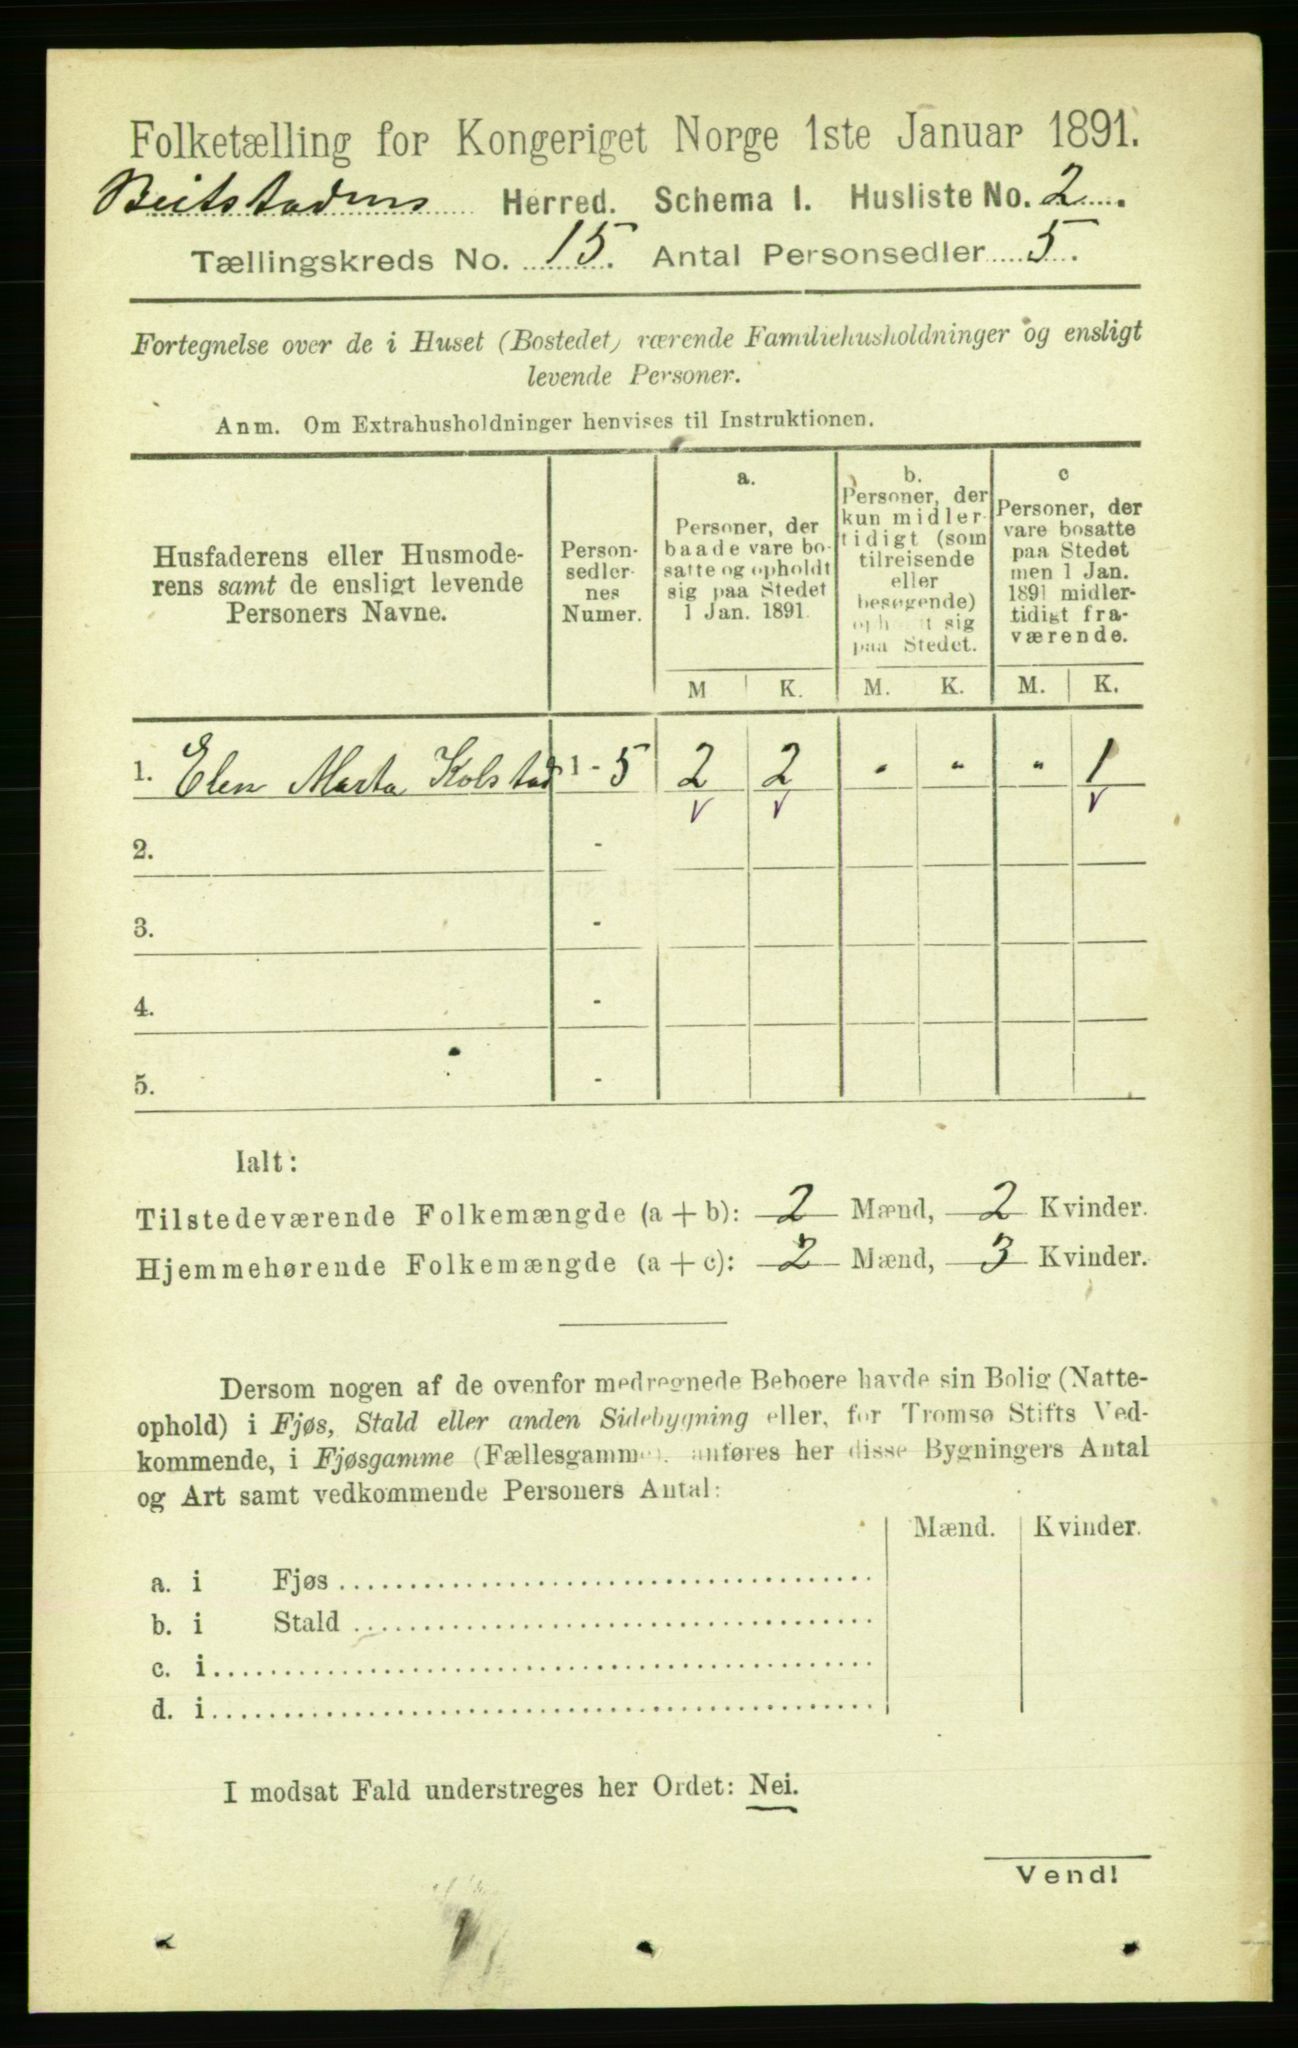 Folketælling for Kongeriget Norge 1ste Januar 1891.
Beitstadens Herred. Schema I. Husliste No. 2.
Tællingskreds No. 15. Antal Personsedler 5.
Fortegnelse over de i Huset (Bostedet) værende Familiehusholdninger og ensligt
levende Personer.
Anm. Om Extrahusholdninger henvises til Instruktionen.
Husfaderens eller Husmode-
rens samt de ensligt levende
Personers Navne.
Person-
sedler-
nes
Numer.
a.
Personer, der
baade vare bo-
satte og opholdt
sig paa Stedet
1 Jan. 1891.
b.
Personer, der
kun midler-
tidigt (som
tilreisende
eller
besøgende)
opholdt sig
paa Stedet.
c
Personer, der
vare bosatte
paa Stedet
men 1 Jan.
1891 midler-
tidigt fra-
værende.
M K. M. K. M. K.
1. Elen Marta Kolstad 1 - 5 2 2 " " " 1
2. -
3. -
4. -
5. -
Ialt:
Tilstedeværende Folkemængde (a + b): 2 Mænd, 2 Kvinder.
Hjemmehørende Folkemængde (a + c): 2 Mænd, 3 Kvinder.
Dersom nogen af de ovenfor medregnede Beboere havde sin Bolig (Natte-
ophold) i Fjøs, Stald eller anden Sidebygning eller, for Tromsø Stifts Ved-
kommende, i Fjøsgamme (Fællesgamme), anføres her disse Bygningers Antal
og Art samt vedkommende Personers Antal:
Mænd. Kvinder.
a. i Fjøs
b. i Stald
c. i
d. i
I modsat Fald understreges her Ordet: Nei.
Vend!